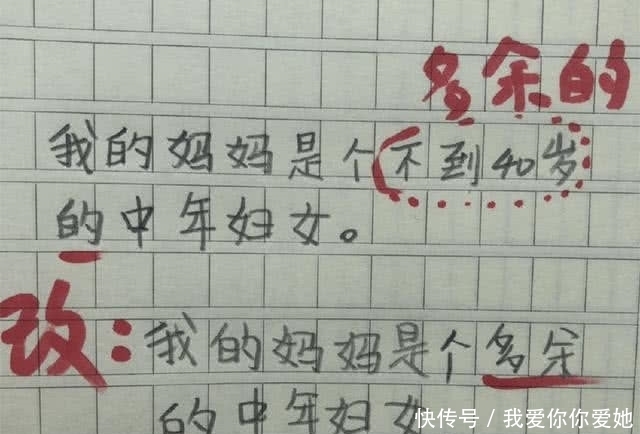 多余的
我的妈妈是个不到40岁
的中年妇女。
改:我的妈妈是个多余
的中年妇女
快传号/我爱你你爱她